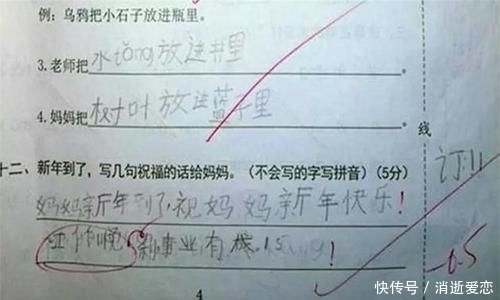 例：乌鸦把小石子放进瓶里。
3.老师把水tǒng放进井里。
4.妈妈把树叶放进蓝子里。
线
十二、新年到了，写几句祝福的话给妈妈。（不会写的字写拼音）（5分）
订!!
妈妈新年到了祝妈妈新年快乐！
事业有
-0.5
4
快传号／消逝爱恋